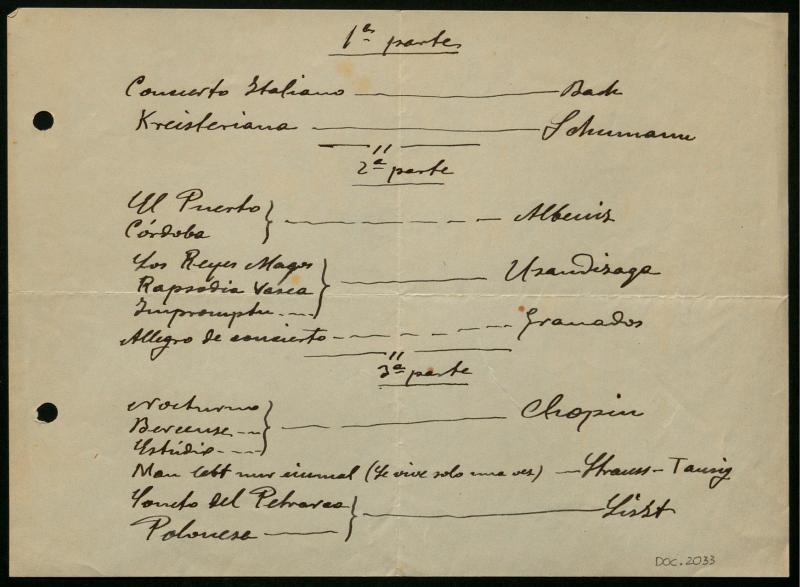 1ª parte
Concierto Italiano — Bach
Kreisleriana — Schumann
2ª parte
El Puerto
Córdoba — Albeniz
Los Reyes Magos
Rapsodia Vasca — Usandizaga
Impromptu
Allegro de concierto — Granados
3ª parte
Nocturno
Berceuse — Chopin
Estúdio
Man lebt nur einmal (Se vive solo una vez) — Strauss-Tausig
Soneto del Petrarca — Liszt
Polonesa
DOC. 2033